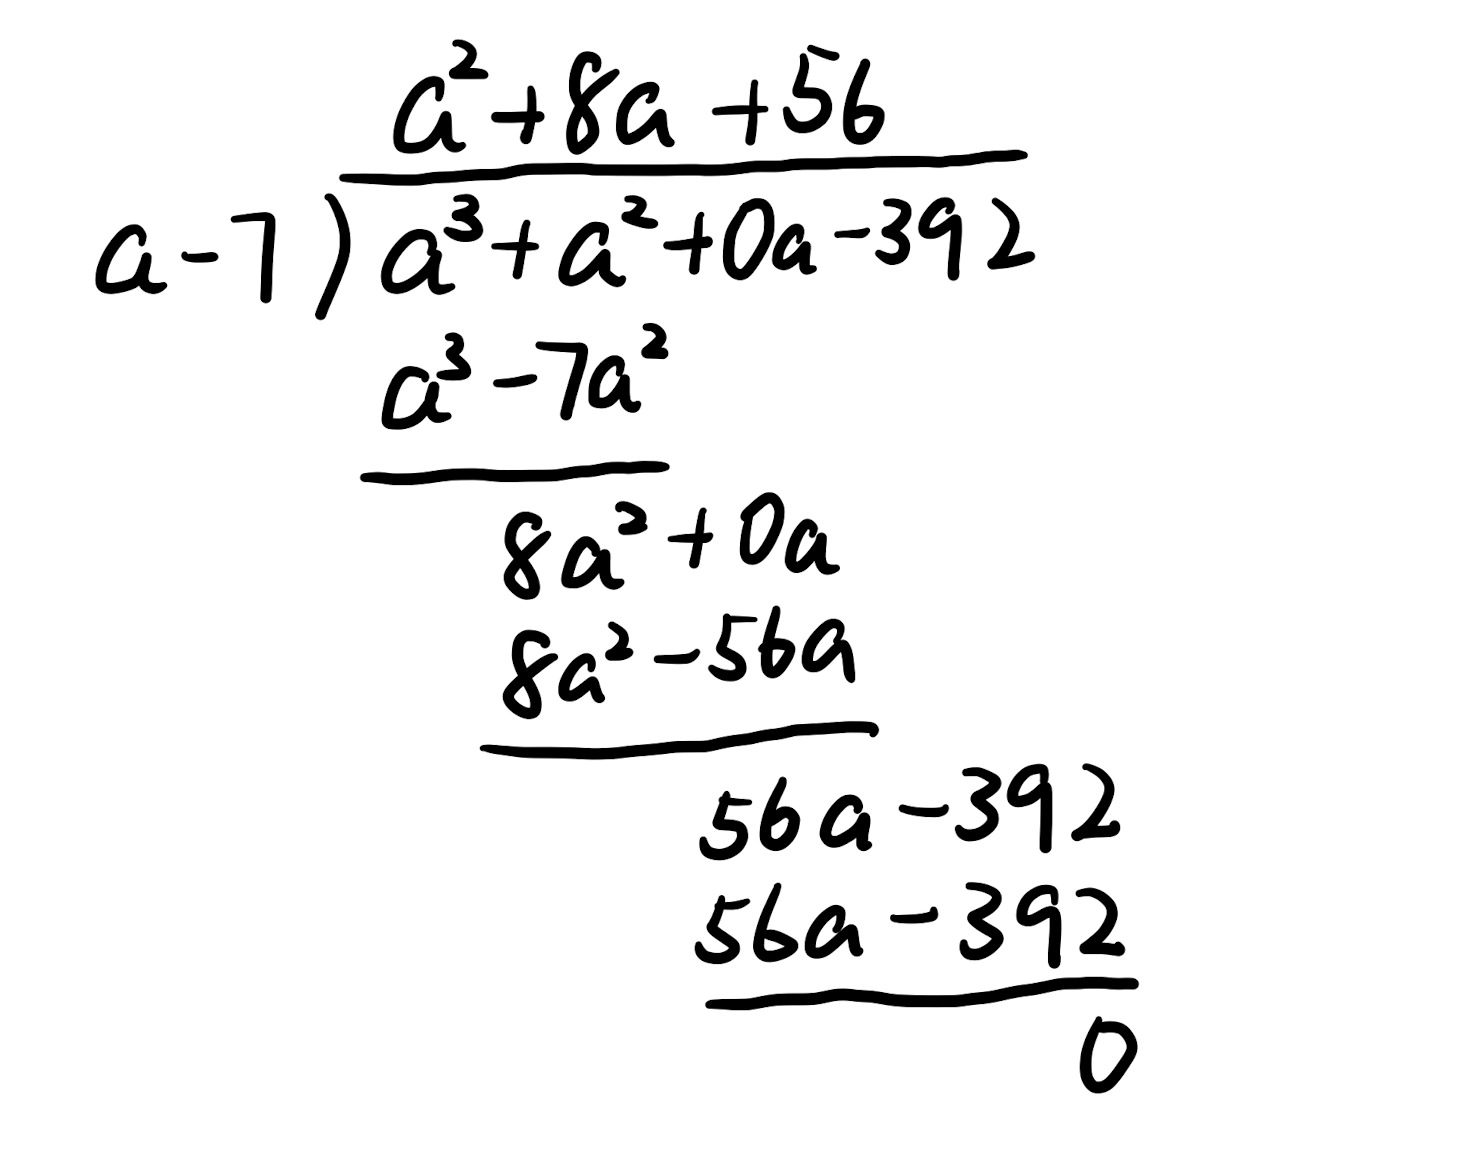 a²+8a+56
a-7)a³+a²+0a-392
a³-7a²
8a²+0a
8a²-56a
56a-392
56a-392
0